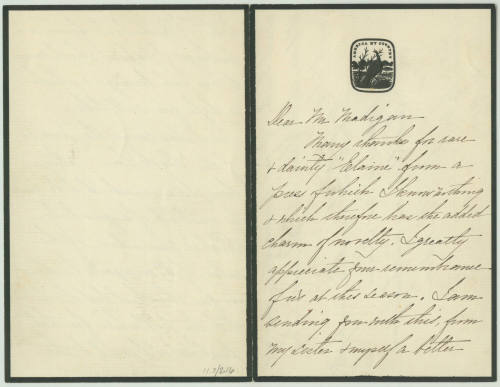 AMERICA MY COUNTRY
Dear Mr Madigan
Many thanks for rare
& dainty "Elaine" from a
press of which I know nothing
& which therefore has the added
charm of novelty. I greatly
appreciate your remembrance
of us at this season. I am
sending you with this, from
my sister & myself a better